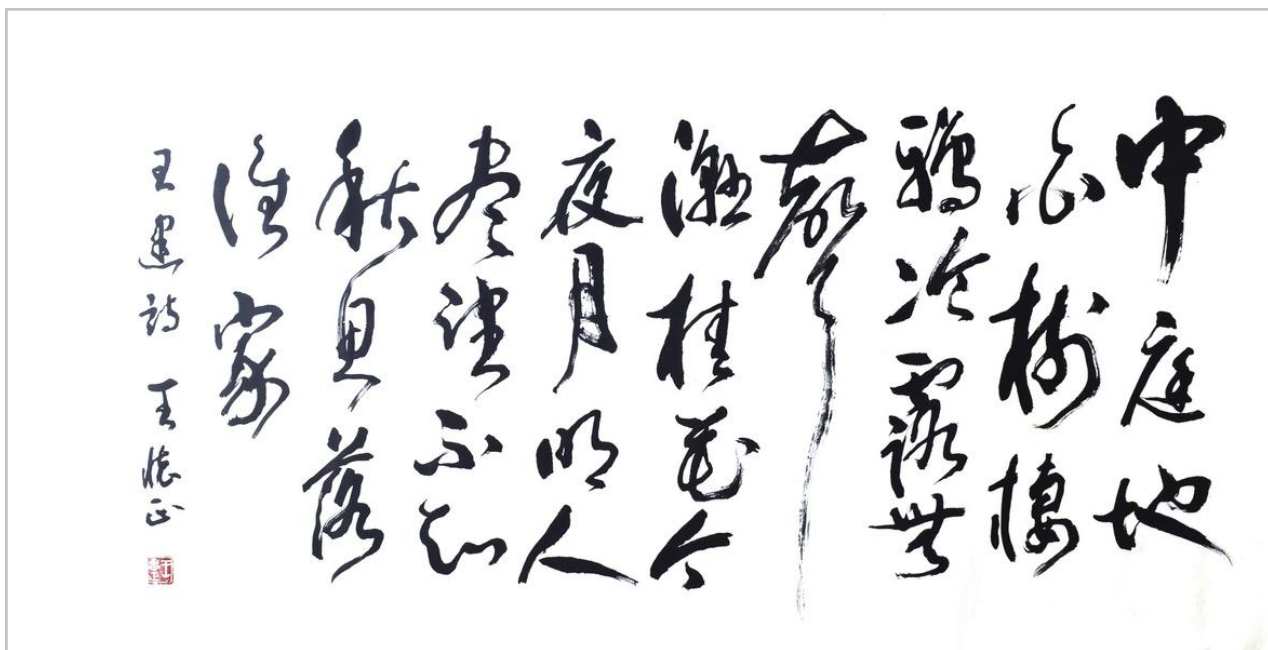 中庭地
白樹棲
鴉冷露無
聲
濕桂花今
夜月明人
尽望不知
秋思落
誰家
王建詩 王懷正